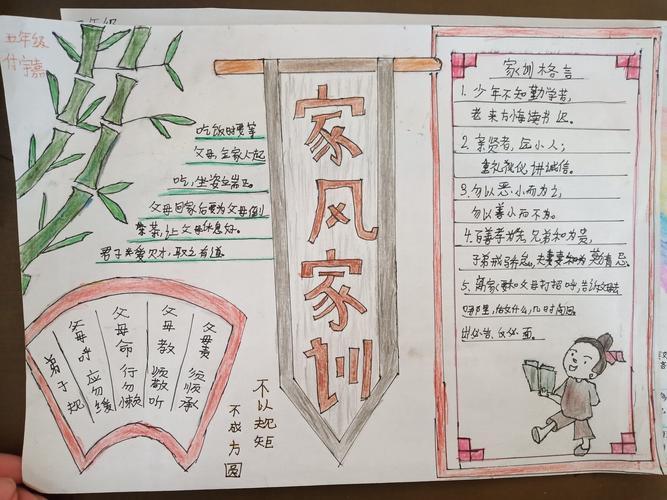 五年级
吃饭时要等
父母,全家人一起
吃,坐姿立端正。
父母回家后要为父母倒
茶,让父母休息好。
君子爱财,取之有道
弟子规
父母呼 应勿缓
父母命 行勿懒
父母教 须敬听
父母责 须顺承
不以规矩
不成方圆
家风家训
家训格言
1. 少年不知勤学苦,
老来方悔读书迟。
2. 亲贤者,远小人;
重礼仪,讲诚信。
3. 勿以恶小而为之,
勿以善小而不为。
4. 百善孝为先,兄弟和为贵,
子弟戒
5. 离家要和父母打招呼,告诉父母去
哪里,做什么,几时回。